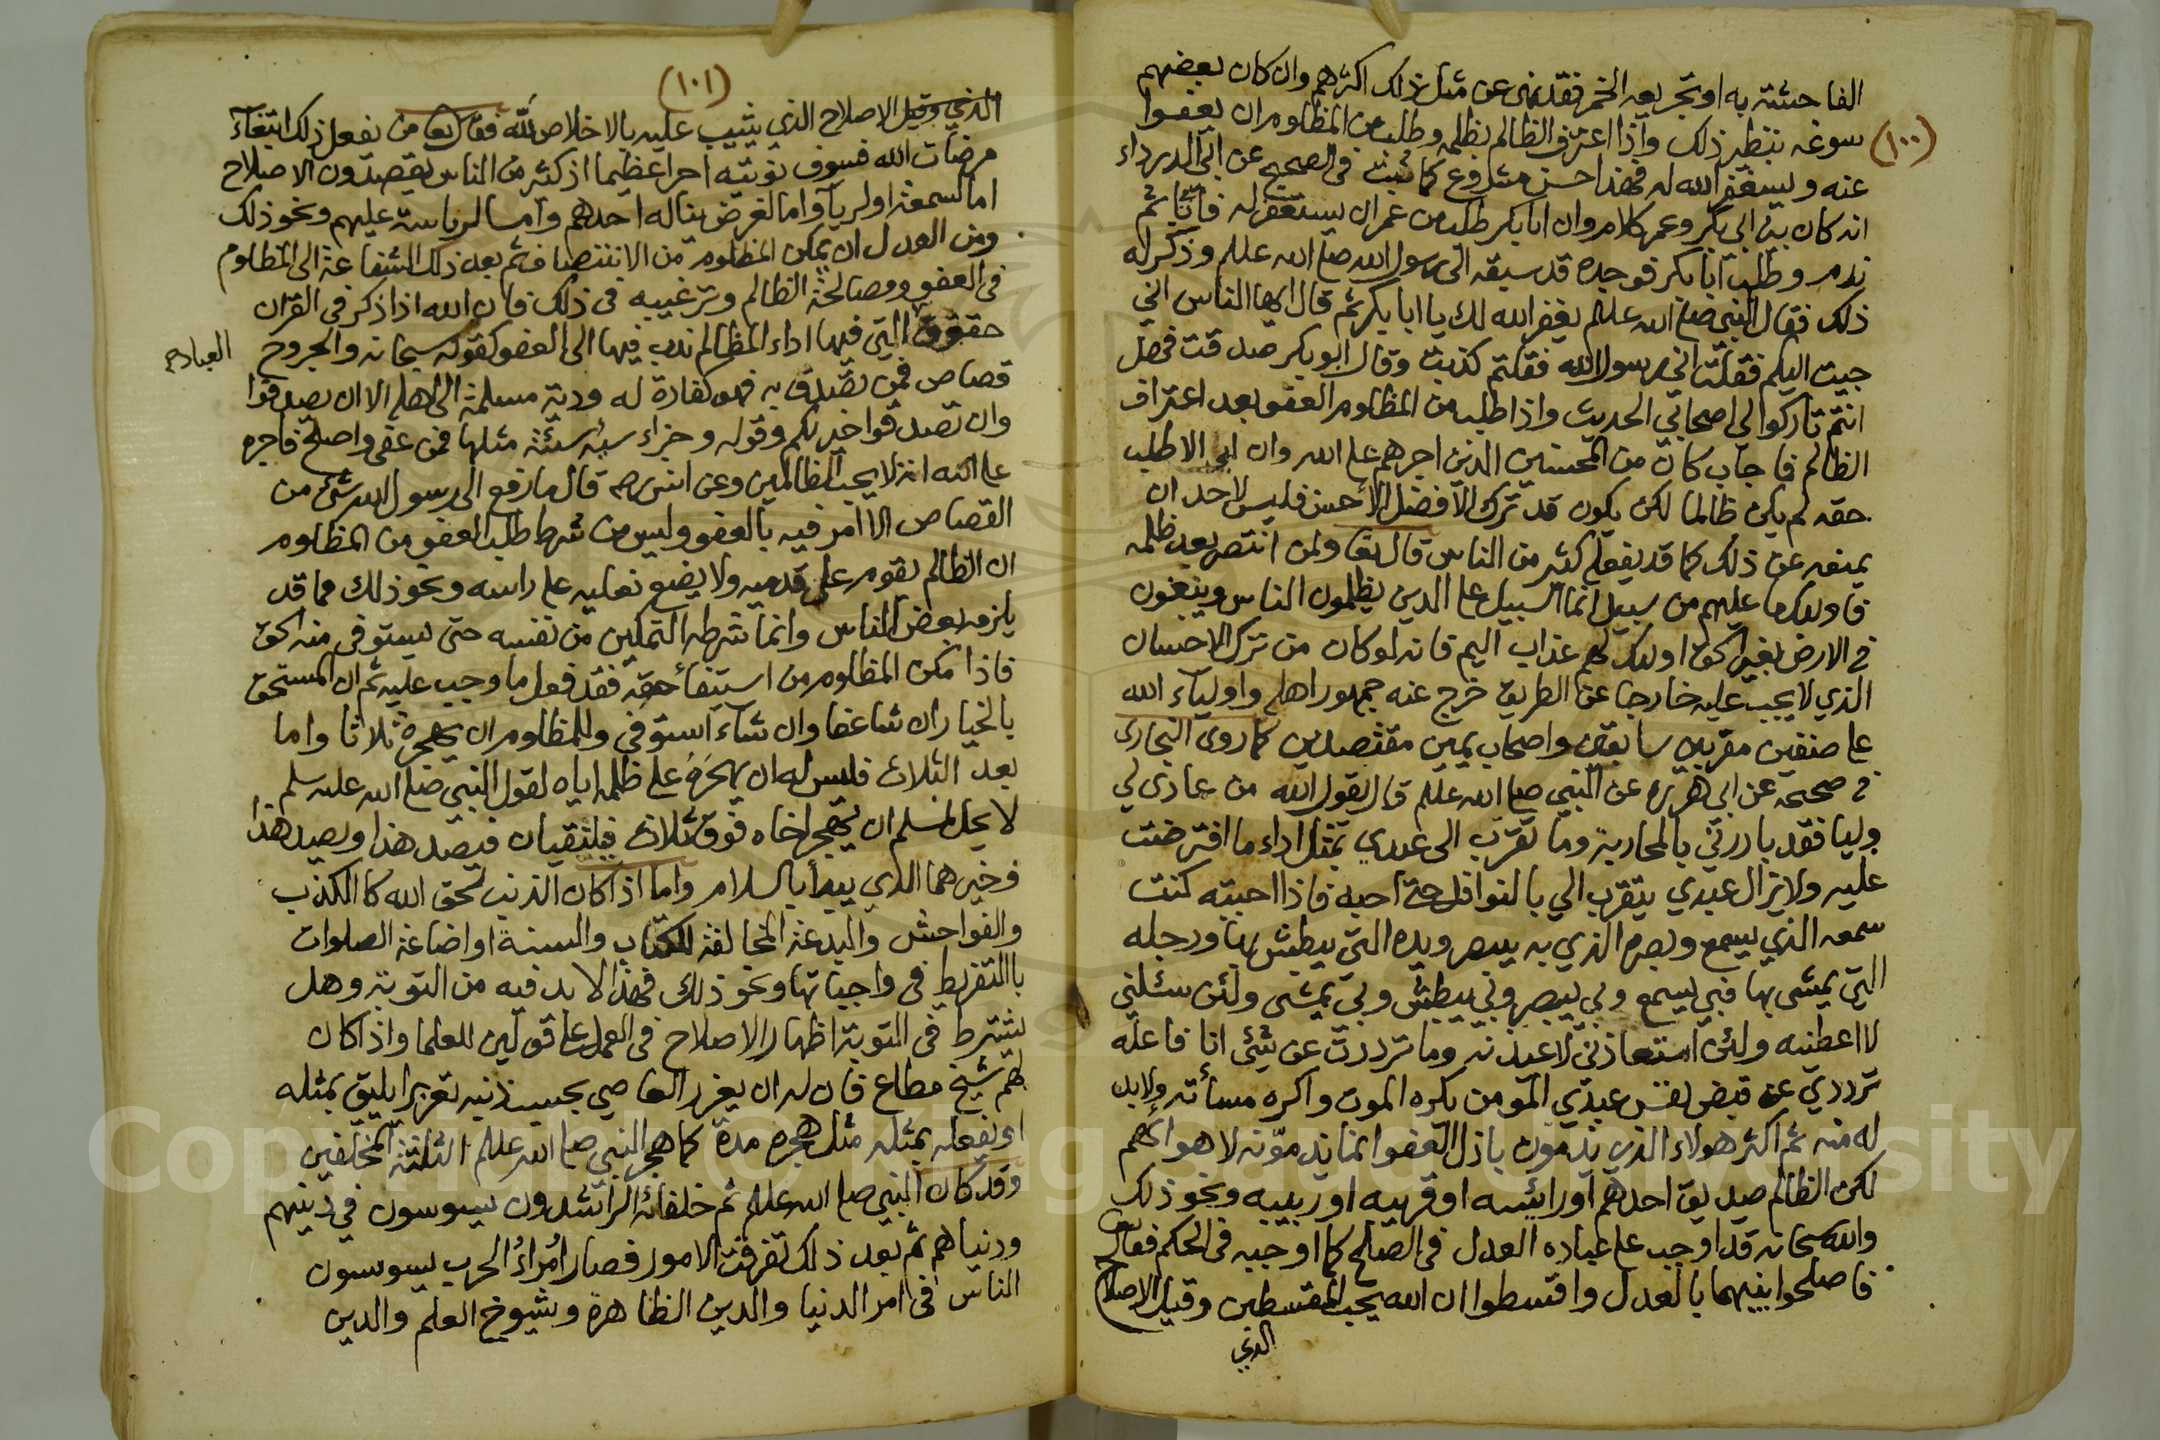 (١٠٠)
الفاحشة به او تجريعه الخمر فقد نهى عن مثل ذلك اكثرهم وان كان بعضهم
سوغه بنظير ذلك واذا اعترف الظالم بظلمه وطلب من المظلوم ان يعفوا
عنه ويستغفر الله له فهذا حسن مشروع كما ثبت في الصحيح عن ابي الدرداء
انه كان بين ابي بكر وعمر كلام وان ابا بكر طلب من عمر ان يستغفر له فابا ثم
ندم وطلب ابا بكر فوجده قد سبقه الى رسول الله صلى الله علم وذكر له
ذلك فقال النبي صلى الله علم يغفر الله لك يا ابا بكر ثم قال ايها الناس اني
جيت اليكم فقلت اني رسول الله فقلتم كذبت وقال ابو بكر صدقت فهل
انتم تاركوا لي اصحابي الحديث واذا طلب من المظلوم العفو بعد اعتراف
الظالم فاجاب كان من المحسنين الذين اجرهم على الله وان ابي الا طلب
حقه لم يكن ظالما لكن يكون قد ترك الافضل الأحسن فليس لاحد ان
يمنعه عن ذلك كما قد يفعله كثير من الناس قال تعا ولمن انتصر بعد ظلمه
فاولئك ما عليهم من سبيل انما السبيل على الذين يظلمون الناس ويبغون
في الارض بغير الحق اولئك لهم عذاب اليم فانه لو كان من ترك الاحسان
الذي لا يجب عليه خارجا عن الطريق خرج عنه جمهور اهله واولياء الله
على صنفين مقربين سابقين واصحاب يمين مقتصدين كما روى البخارى
في صحيحه عن ابي هريره عن النبي صلى الله علم قال يقول الله من عادى لي
وليا فقد بادرني بالمحاربة وما تقرب الى عبدي بمثل اداء ما افترضت
عليه ولا يزال عبدي يتقرب الي بالنوافل حتى احبه فاذا احببته كنت
سمعه الذي يسمع وبصره الذي به يبصر ويده التي يبطش بها ورجله
التي يمشى بها فبي يسمع وبي يبصر وبي يبطش وبي يمشى ولئن سئلني
لا اعطنيه ولئن استعاذني لاعيذنه وما ترددت عن شئ انا فاعله
ترددي عن قبض نفس عبدي المومن يكره الموت واكره مسأته ولا بد
له منه ثم اكثر هولاء الذين يذمون باذل العفو انما يذمونه لاهوائهم
لكن الظالم صديق احدهم او رائيسه او قريبه او ربيبه ونحو ذلك
والله سبحانه قد اوجب على عباده العدل في الصلح كما اوجبه في الحكم فقال تعا
فاصلحوا بينهما بالعدل واقسطوا ان الله يحب المقسطين وقيل الاصلاح
الذي
(١٠١)
الذي وقيل الاصلاح الذي يثيب عليه بالاخلاص لله فقال تعا من يفعل ذلك ابتغاء
مرضات الله فسوف نوتيه اجرا عظيما اذ كثير من الناس يقصدون الاصلاح
اما لسمعة او لريآء واما لغرض يناله احدهم واما لرياسة عليهم ونحو ذلك
ومن العدل ان يمكن المظلوم من الانتصاف ثم بعد ذلك الشفاعة الى المظلوم
في العفو ومصالحة الظالم وترغيبه في ذلك فان الله اذا ذكر في القران
حقوق التي فيها اداء المظالم ندب فيها الى العفو كقوله سبحانه والجروح
العباد صح
قصاص فمن تصدق به فهو كفارة له ودية مسلمة الى اهله الا ان يصدقوا
وان تصدقوا خير لكم وقوله وجزاء سيئة سيئة مثلها فمن عفى واصلح فاجره
على الله انه لا يحب الظالمين وعن انس رضه قال ما رفع الى رسول الله شئ من
القصاص الا امر فيه بالعفو وليس من شرط طلب العفو من المظلوم
ان الظالم يقوم على قدميه ولا يضع نعليه على راسه ونحو ذلك مما قد
يلزمه بعض الناس وانما شرطه التمكين من نفسه حتى يستوفى منه الحق
فاذا مكن المظلوم من استيفاء حقه فقد فعل ما وجب عليه ثم ان المستحق
بالخيار ان شا عفا وان شاء استوفي وللمظلوم ان يهجره ثلاثا واما
بعد الثلاث فليس له ان يهجره على ظلمه اياه لقول النبي صلى الله عليه سلم
لا يحل لمسلم ان يهجر اخاه فوق ثلاث فيلتقيان فيصد هذا ويصد هذا
وخيرهما الذي يبدأ بالسلام واما اذا كان الذنب لحق الله كالكذب
والفواحش والبدعة المخالفة للكتاب والسنة او اضاعة الصلوات
باالتفريط في واجباتها ونحو ذلك فهذا لا بد فيه من التوبة وهل
يشترط في التوبة اظهار الاصلاح في العمل على قولين للعلما واذا كان
لهم شيخ مطاع فان له ان يعزر العاصي بحسب ذنبه تعزيرا يليق بمثله
او يفعله بمثله مثل هجره مدة كما هجر النبي صلى الله علم الثلاثة المخلفين
وقد كان النبي صلى الله علم ثم خلفائه الراشدون يسوسون في دينهم
ودنياهم ثم بعد ذلك تفرقت الامور فصار امراءُ الحرب يسوسون
الناس في امر الدنيا والدين الظاهرة وشيوخ العلم والدين
Copyright © King Saud University